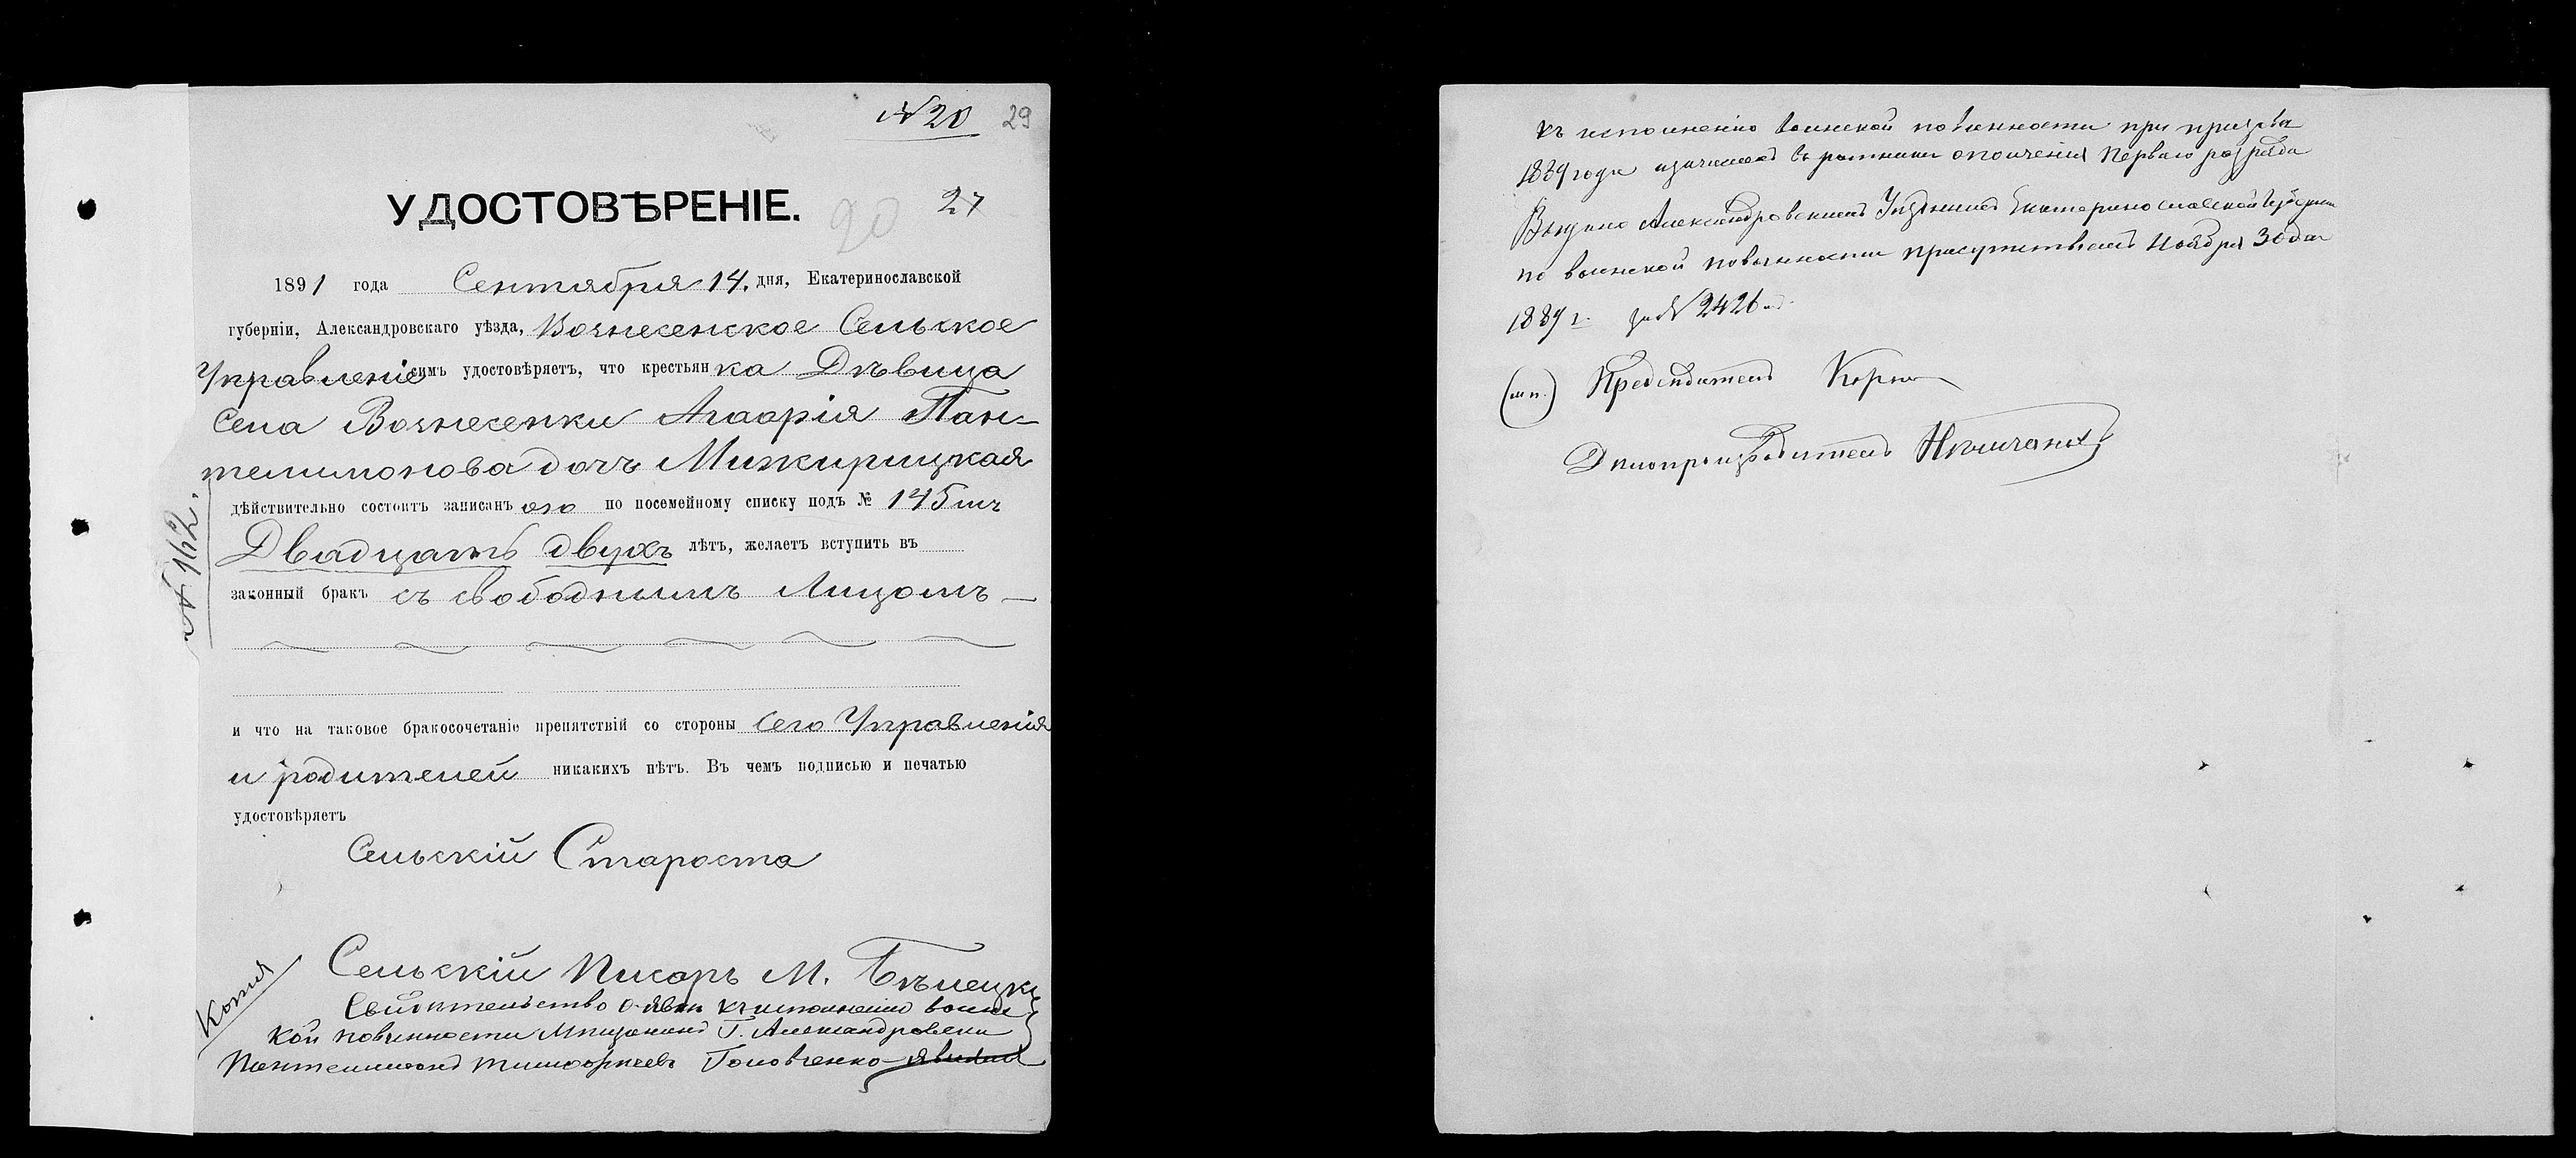 № 20 29
УДОСТОВѢРЕНІЕ.
20 27
1891 года Сентября 14. дня, Екатеринославской
губерніи, Александровскаго уѣзда, Вознесенское Сельское
Управленіе симъ удостовѣряетъ, что крестьянка Дѣвица
Села Вознесенки Агафія Пан-
телимонова дочь Мижирицкая
дѣйствительно состоитъ записанъою по посемейному списку подъ № 145мъ
Двадцать двухъ лѣтъ, желаетъ вступить въ
законный бракъ съ свободнымъ лицомъ —
и что на таковое бракосочетаніе препятствій со стороны сего Управленія
и родителей никакихъ нѣтъ. Въ чемъ подписью и печатью
удостовѣряетъ
Сельскій Староста
Сельскій Писарь М. Бѣлецкі
№ 162.
Копія
Свидѣтельство о явкѣ къ исполненію воинс
кой повинности Мѣщанинъ Г. Александровска
Пантелимонъ Тимофѣевъ Головченко явился
къ исполненію воинской повинности при призывѣ
1889 года зачисленъ въ ратники ополченія перваго разряда
Выдано Александровскимъ Уѣзднымъ Екатеринославской Губерніи
по воинской повинности присутствіемъ Ноября 30 дня
1889 г. за № 2426мъ.
(м п.) Предсѣдатель
Дѣлопроизводитель